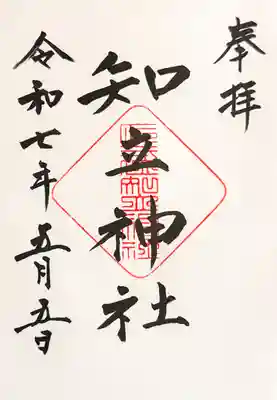 奉拝
知立神社
令和七年五月五日